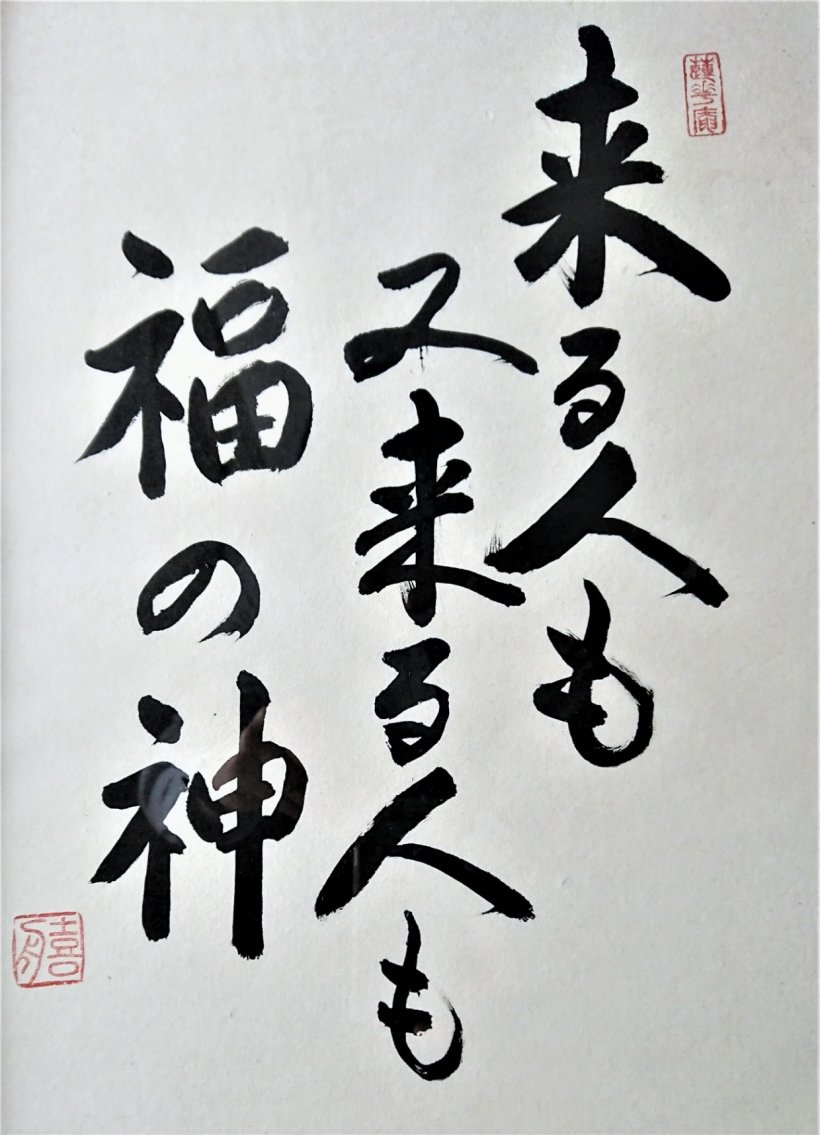 来る人も
又来る人も
福の神